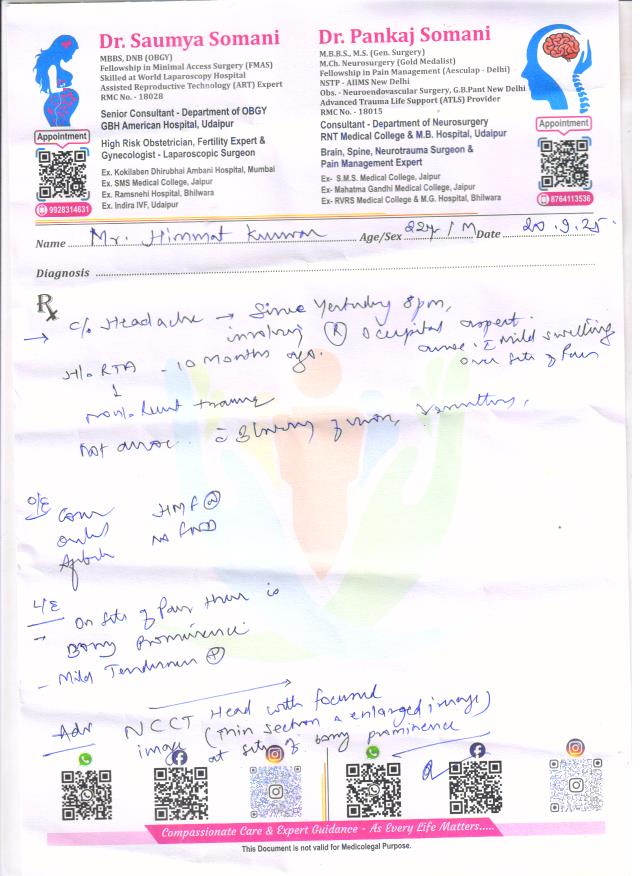 Dr. Saumya Somani
MBBS, DNB (OBGY)
Fellowship in Minimal Access Surgery (FMAS)
Skilled at World Laparoscopy Hospital
Assisted Reproductive Technology (ART) Expert
RMC No. - 18028
Senior Consultant - Department of OBGY
GBH American Hospital, Udaipur
High Risk Obstetrician, Fertility Expert &
Gynecologist - Laparoscopic Surgeon
Ex. Kokilaben Dhirubhai Ambani Hospital, Mumbai
Ex. SMS Medical College, Jaipur
Ex. Ramsnehi Hospital, Bhilwara
Ex. Indira IVF, Udaipur
Appointment
9928314631
Dr. Pankaj Somani
M.B.B.S., M.S. (Gen. Surgery)
M.Ch. Neurosurgery (Gold Medalist)
Fellowship in Pain Management (Aesculap - Delhi)
NSTP - AIIMS New Delhi
Obs. - Neuroendovascular Surgery, G.B.Pant New Delhi
Advanced Trauma Life Support (ATLS) Provider
RMC No. - 18015
Consultant - Department of Neurosurgery
RNT Medical College & M.B. Hospital, Udaipur
Brain, Spine, Neurotrauma Surgeon &
Pain Management Expert
Ex- S.M.S. Medical College, Jaipur
Ex- Mahatma Gandhi Medical College, Jaipur
Ex- RVRS Medical College & M.G. Hospital, Bhilwara
Appointment
8764113536
Name Mr. Himmat Kunwar Age/Sex 22y / M Date 20.9.25.
Diagnosis
Rx
→ c/o Headache → Since Yesterday 8pm,
involving (R) Occipital aspect.
mild swelling
over site of Pain
H/o RTA - 10 months ago.
↓
trauma
Not assoc. Blurring of vision, Vomiting,
O/E Cons HMF (N)
Oriented No FND
Afebrile
L/E On site of Pain there is
→ Bony Prominence
- Mild Tenderness (+)
Adv NCCT Head with focused
image (thin section & enlarged image)
at site of bony prominence
Compassionate Care & Expert Guidance - As Every Life Matters.....
This Document is not valid for Medicolegal Purpose.